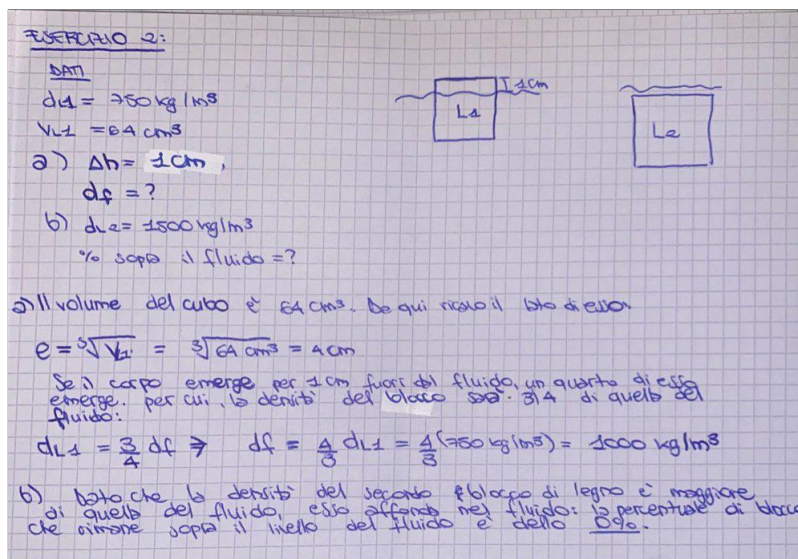 ESERCIZIO 2:
DATI
dL1 = 750 kg/m³
VL1 = 64 cm³
a) Δh = 1cm,
df = ?
b) dL2 = 1500 kg/m³
% sopra il fluido = ?
I 1cm
L1
L2
a) Il volume del cubo è 64 cm³. Da qui ricavo il lato di esso.
e = ³√VL1 = ³√64 cm³ = 4 cm
Se il corpo emerge per 1 cm fuori dal fluido, un quarto di esso
emerge. per cui, la densità del blocco sarà 3/4 di quella del
fluido:
dL1 = 3/4 df ⇒ df = 4/3 dL1 = 4/3 (750 kg/m³) = 1000 kg/m³
b) Dato che la densità del secondo blocco di legno è maggiore
di quella del fluido, esso affonda nel fluido: la percentuale di blocco
che rimane sopra il livello del fluido è dello 0%.